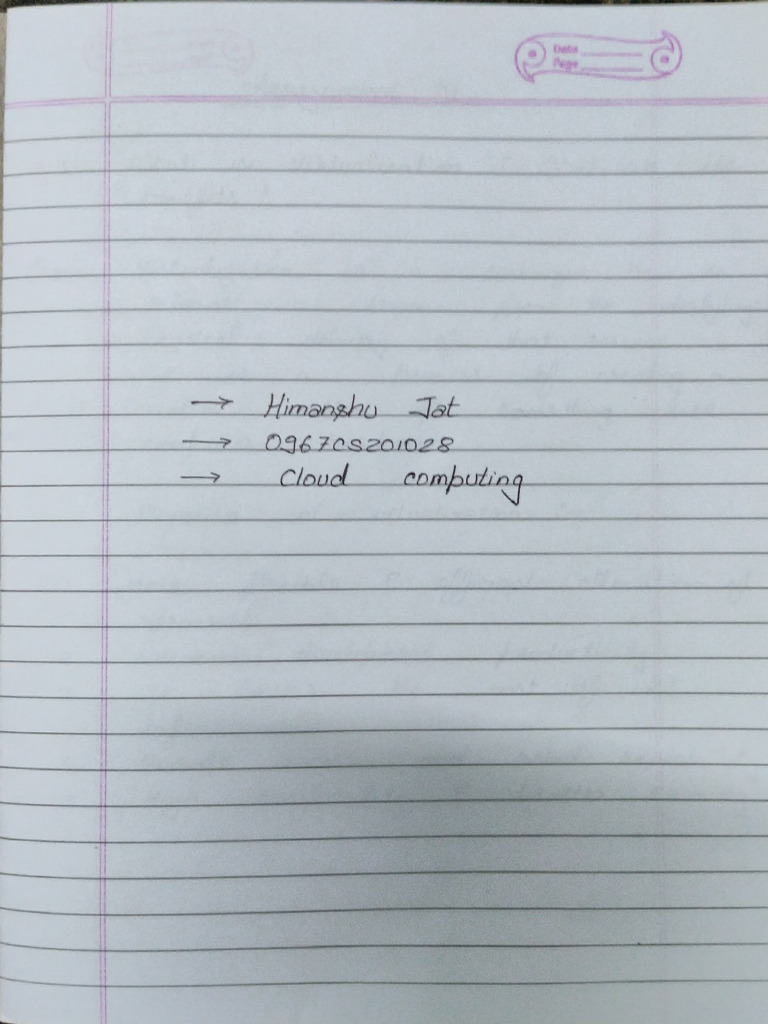 Date
Page
→ Himanshu Jat
→ 0967CS201028
→ Cloud computing